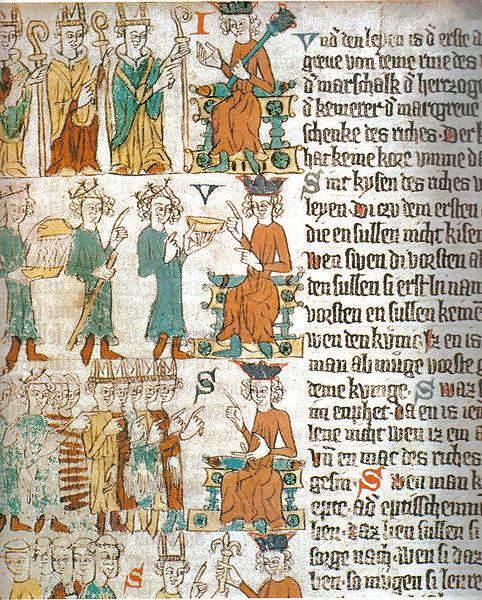 I
Vnd den leyen is d̕ erste a
greve von deme rine des
d̕ marschalk d̕ herzoge
d̕ kemerer d̕ margreve
schenke des riches. Der k
har keine kore vmme da
V
Sint kysen des riches v
leyen. Di czv dem ersten
die en sullen nicht kisen
wen swen di vorsten al
den sullen si erst
vorsten en sullen keine
wen den kvnic. Iz en is
man ab mvge vorste g
deme kvnige. Swaz s
S
en is ien
lene nicht wen iz em a
vn̄ en mac des riches
gesin. Swen man k
hen. daz hen sullen si
sorge nach. Wen si daz
S
hen. so mvgen si